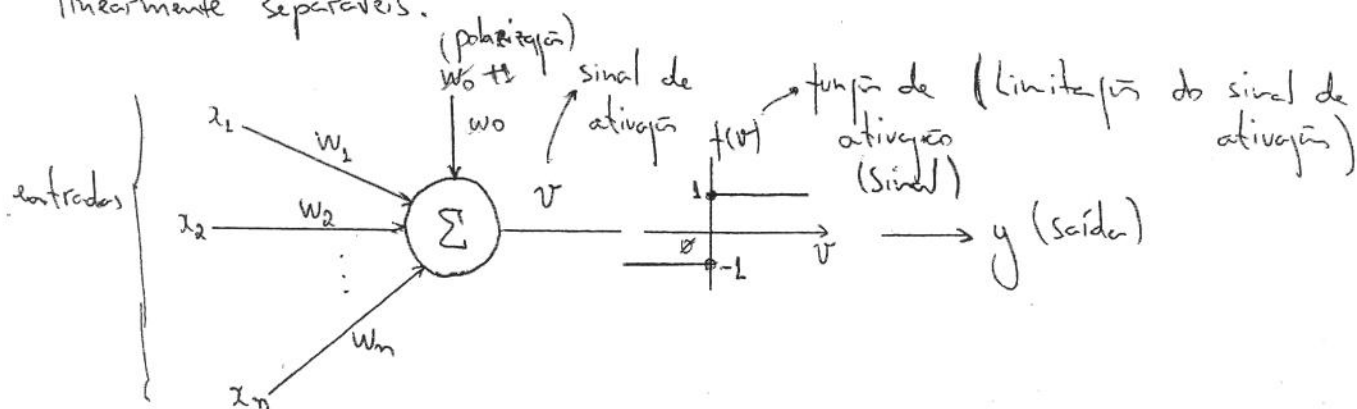 linearmente separáveis.
(polarização)
w0 +1
w0
sinal de
ativação
v
função de
ativação
(Sinal)
(Limitação do sinal de
ativação)
f(v)
1
0
-1
v
entradas
x1
w1
x2
w2
⋮
wn
xn
Σ
y (saída)